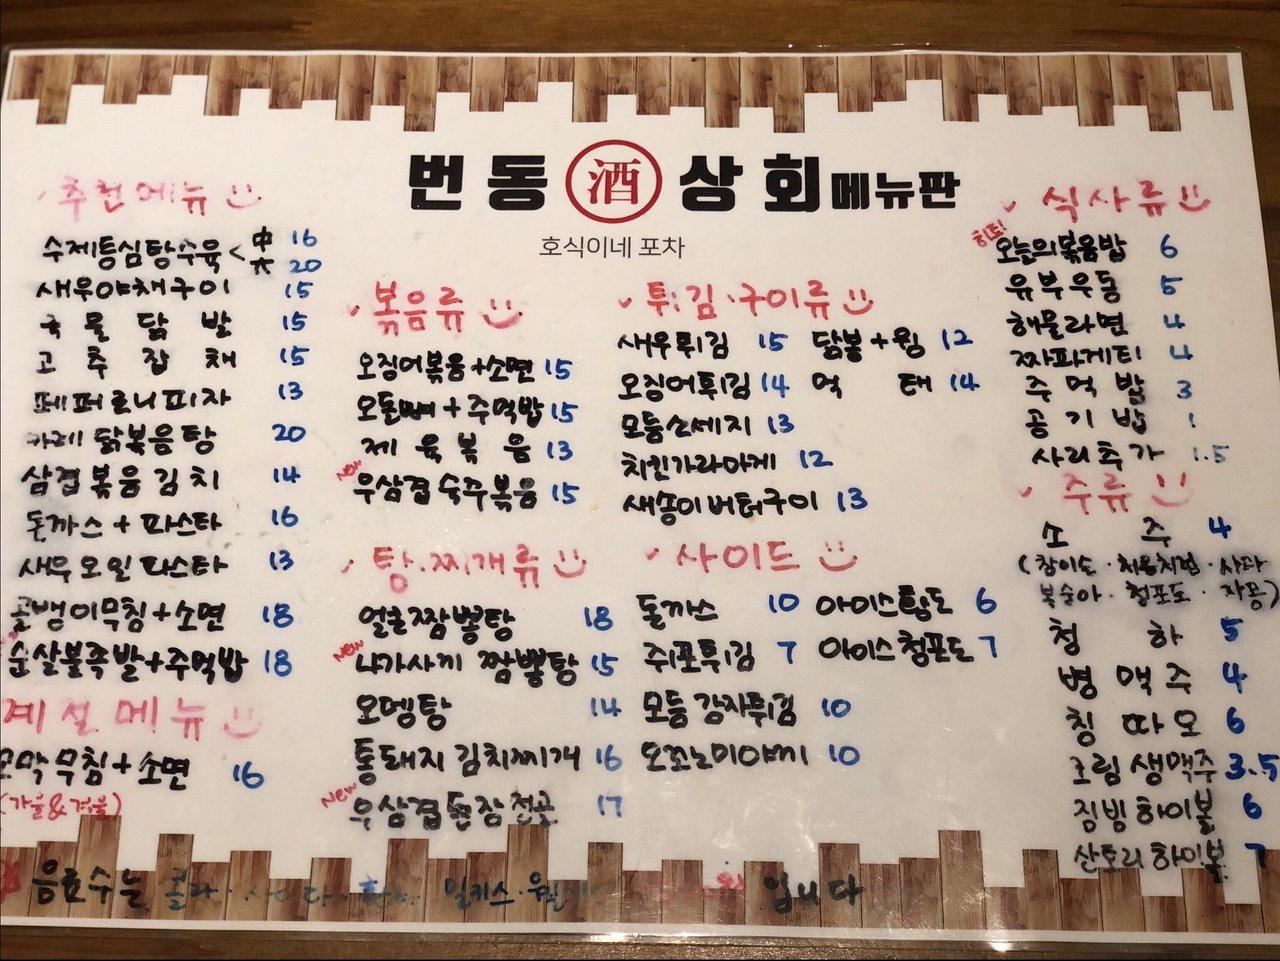 번동 酒 상회 메뉴판
호식이네 포차
추천메뉴
수제등심탕수육 < 中 16
大 20
새우야채구이 15
국물닭발 15
고추잡채 15
페퍼로니피자 13
카레 닭볶음탕 20
삼겹볶음김치 14
돈까스 + 파스타 16
새우오일파스타 13
골뱅이무침+소면 18
순살불족발+주먹밥 18
계절메뉴
꼬막무침+소면 16
(가을&겨울)
볶음류
오징어볶음+소면 15
오돌뼈+주먹밥 15
제육볶음 13
NEW
우삼겹숙주볶음 15
탕.찌개류
얼큰짬뽕탕 18
NEW
나가사끼 짬뽕탕 15
오뎅탕 14
통돼지 김치찌개 16
NEW
우삼겹된장전골 17
튀김·구이류
새우튀김 15 닭봉+윙 12
오징어튀김 14 먹태 14
모듬소세지 13
치킨가라아게 12
새송이버터구이 13
사이드
돈까스 10 아이스홍도 6
쥐포튀김 7 아이스청포도 7
모듬감자튀김 10
오꼬노미야끼 10
식사류
히트!
오늘의볶음밥 6
유부우동 5
해물라면 4
짜파게티 4
주먹밥 3
공기밥 1
사리추가 1.5
주류
소주 4
(참이슬·처음처럼·
복숭아·청포도·자몽)
청하 5
병맥주 4
칭따오 6
크림생맥주 3.5
짐빔하이볼 6
산토리하이볼 7
음료수는 콜라·사이다· 밀키스· 입니다